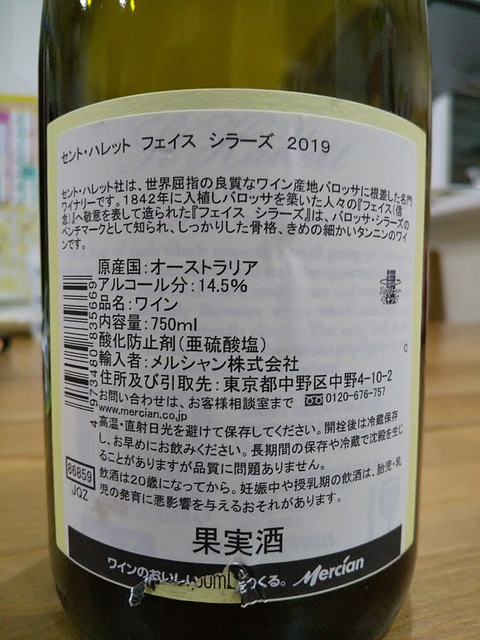 セント・ハレット フェイス シラーズ 2019
セント・ハレット社は、世界屈指の良質なワイン産地バロッサに根差した名門
ワイナリーです。1842年に入植しバロッサを築いた人々の『フェイス(信
念)』へ敬意を表して造られた『フェイス シラーズ』は、バロッサ・シラーズの
ベンチマークとして知られ、しっかりした骨格、きめの細かいタンニンのワイ
ンです。
原産国:オーストラリア
アルコール分:14.5%
品名:ワイン
内容量:750ml
酸化防止剤(亜硫酸塩)
輸入者:メルシャン株式会社
住所及び引取先:東京都中野区中野4-10-2
お問い合わせは、お客様相談室まで 0120-676-757
www.mercian.co.jp
高温・直射日光を避けて保存してください。開栓後は冷蔵保存
し、お早めにお飲みください。長期間の保存や冷蔵で沈殿を生じ
ることがありますが品質に問題ありません。
飲酒は20歳になってから。妊娠中や授乳期の飲酒は、胎児・乳
児の発育に悪影響を与えるおそれがあります。
4 973480 835669
86859
JQZ
C
果実酒
ワインのおいしい つくる。 Mercian